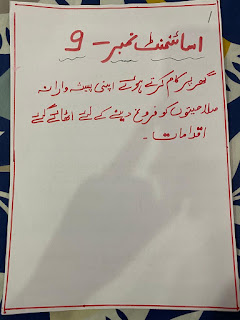 1
اسائنمنٹ نمبر - 9
گھر پر کام کرتے ہوئے اپنی پیشہ وارانہ
صلاحیتوں کو فروغ دینے کے لیے اٹھائے گئے
اقدامات -